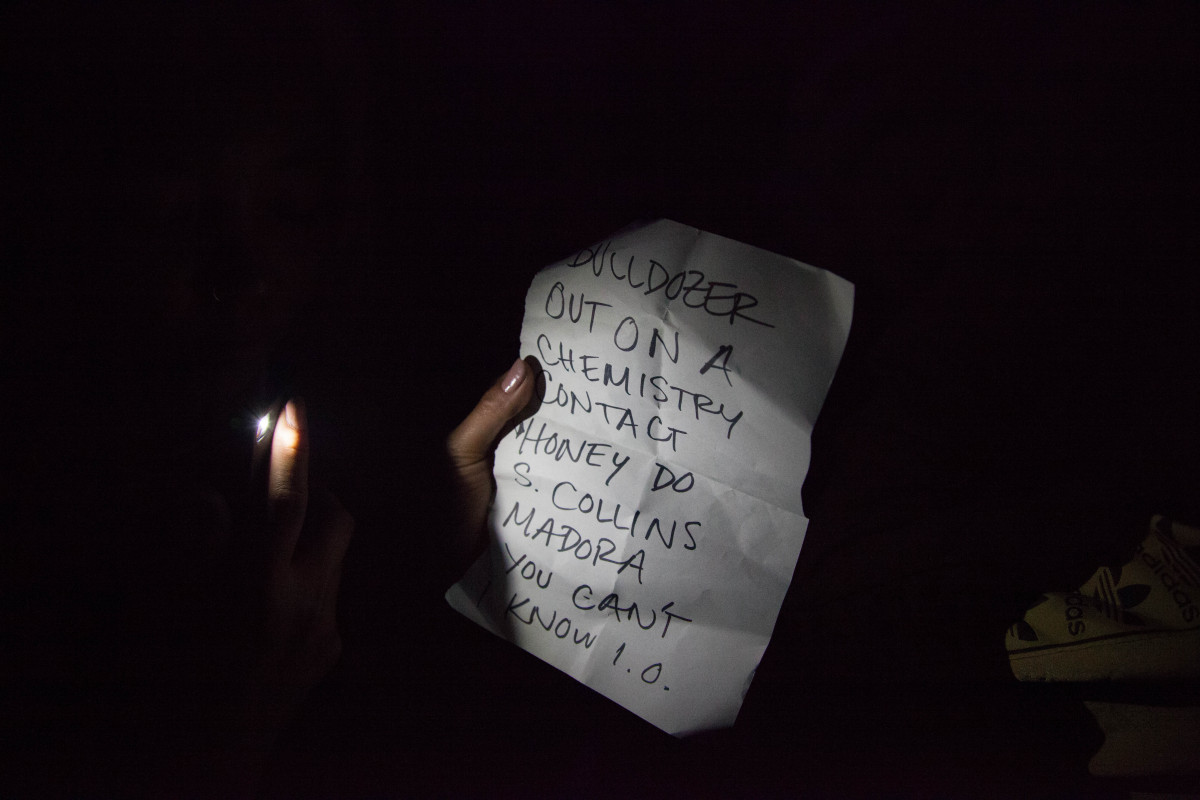 BULLDOZER
OUT ON A
CHEMISTRY
CONTACT
HONEY DO
S. COLLINS
MADORA
YOU CAN'T
I KNOW 1.0.
adidas
adidas